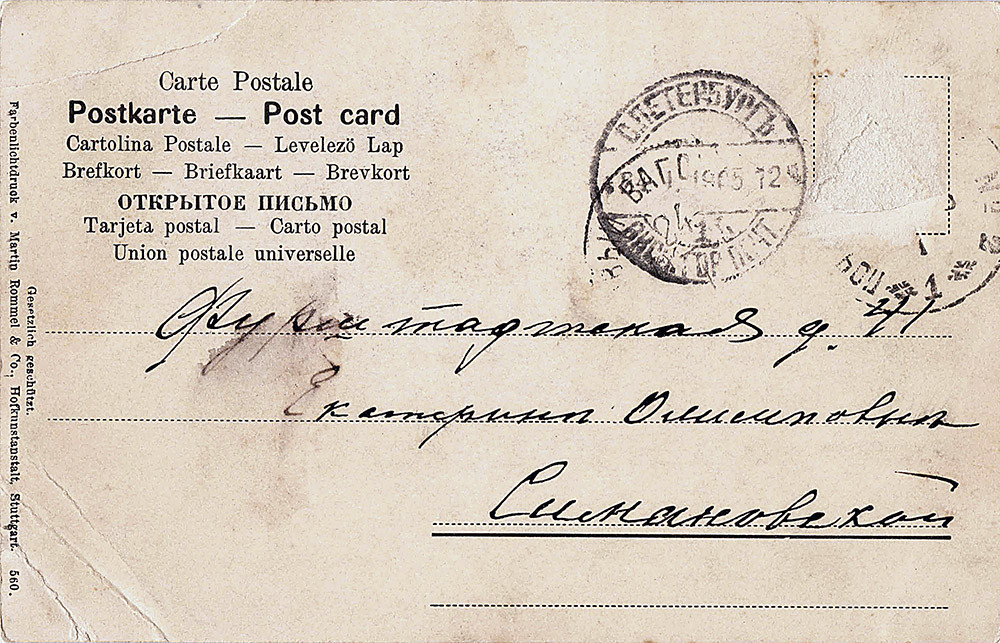 Carte Postale
Postkarte — Post card
Cartolina Postale — Levelezö Lap
Brefkort — Briefkaart — Brevkort
ОТКРЫТОЕ ПИСЬМО
Tarjeta postal — Carto postal
Union postale universelle
Farbenlichtdruck v. Martin Rommel & Co., Hofkunstanstalt, Stuttgart. 560.
Gesetzlich geschützt.
С.ПЕТЕРБУРГЪ
ВАГ
1905
1
Фурштадтская д. 41
Екатеринѣ Осиповнѣ
Симановской